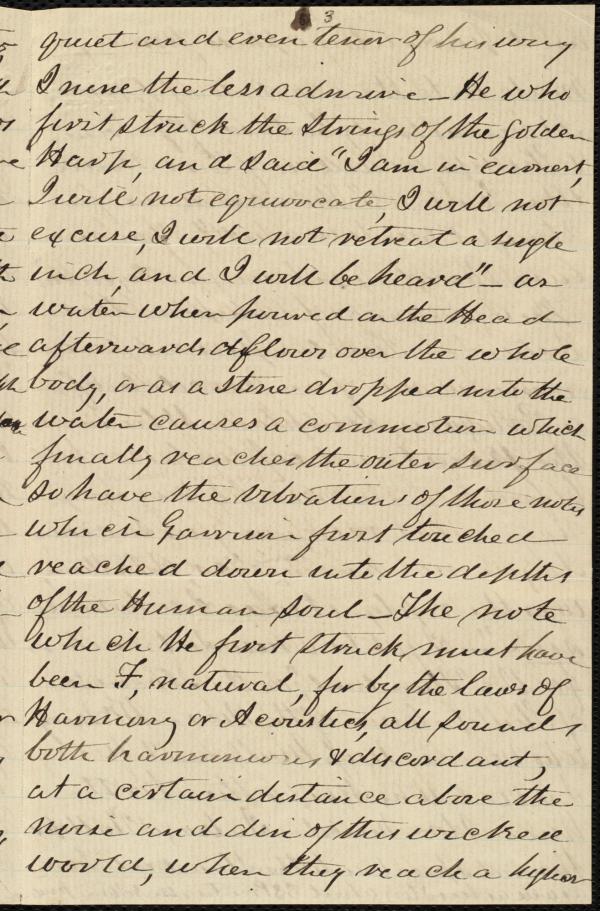 3
quiet and even tenor of his way
I none the less admire - He who
first struck the strings of the golden
Harp, and said "I am in earnest,
I will not equivocate, I will not
excuse, I will not retreat a single
inch, and I will be heard" - as
water when poured on the Head
afterwards flows over the whole
body, or as a stone dropped into the
water causes a commotion which
finally reaches the outer surface
so have the vibration's of those notes
which Garrison first touched
reached down into the depths
of the Human soul - The note
which He first struck, must have
been F, natural, for by the laws of
Harmony or Acoustics, all sounds
both harmonious & discordant,
at a certain distance above the
noise and din of this wicked
world, when they reach a higher